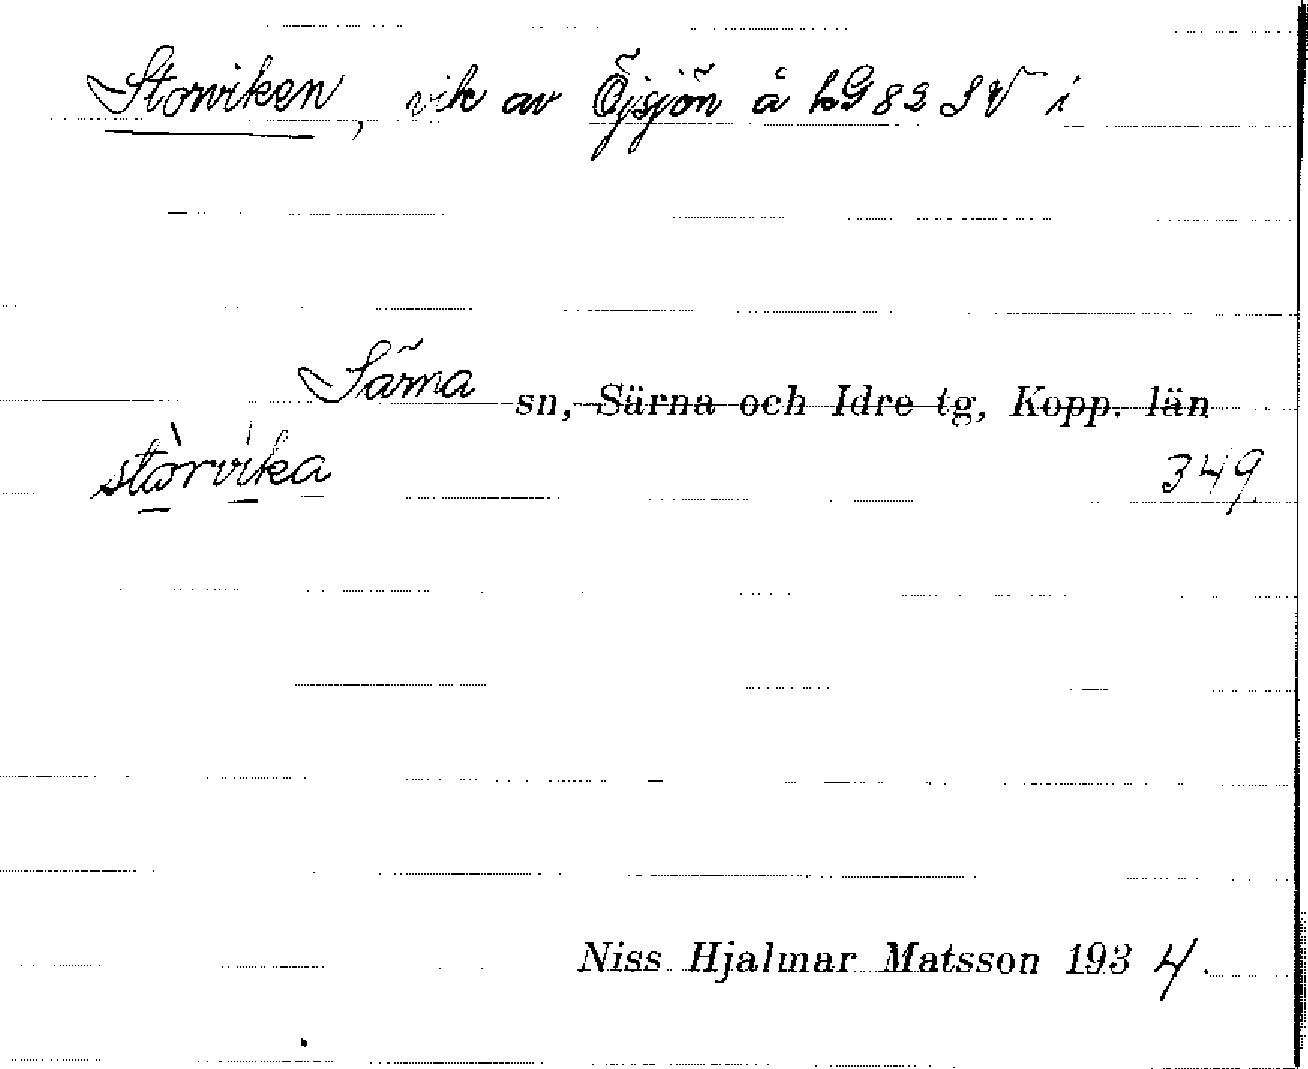 Storviken, vik av Öjsjön å kG 82 SV i
Särna sn, Särna och Idre tg, Kopp. län
stòrvika
349
Niss Hjalmar Matsson 1934.